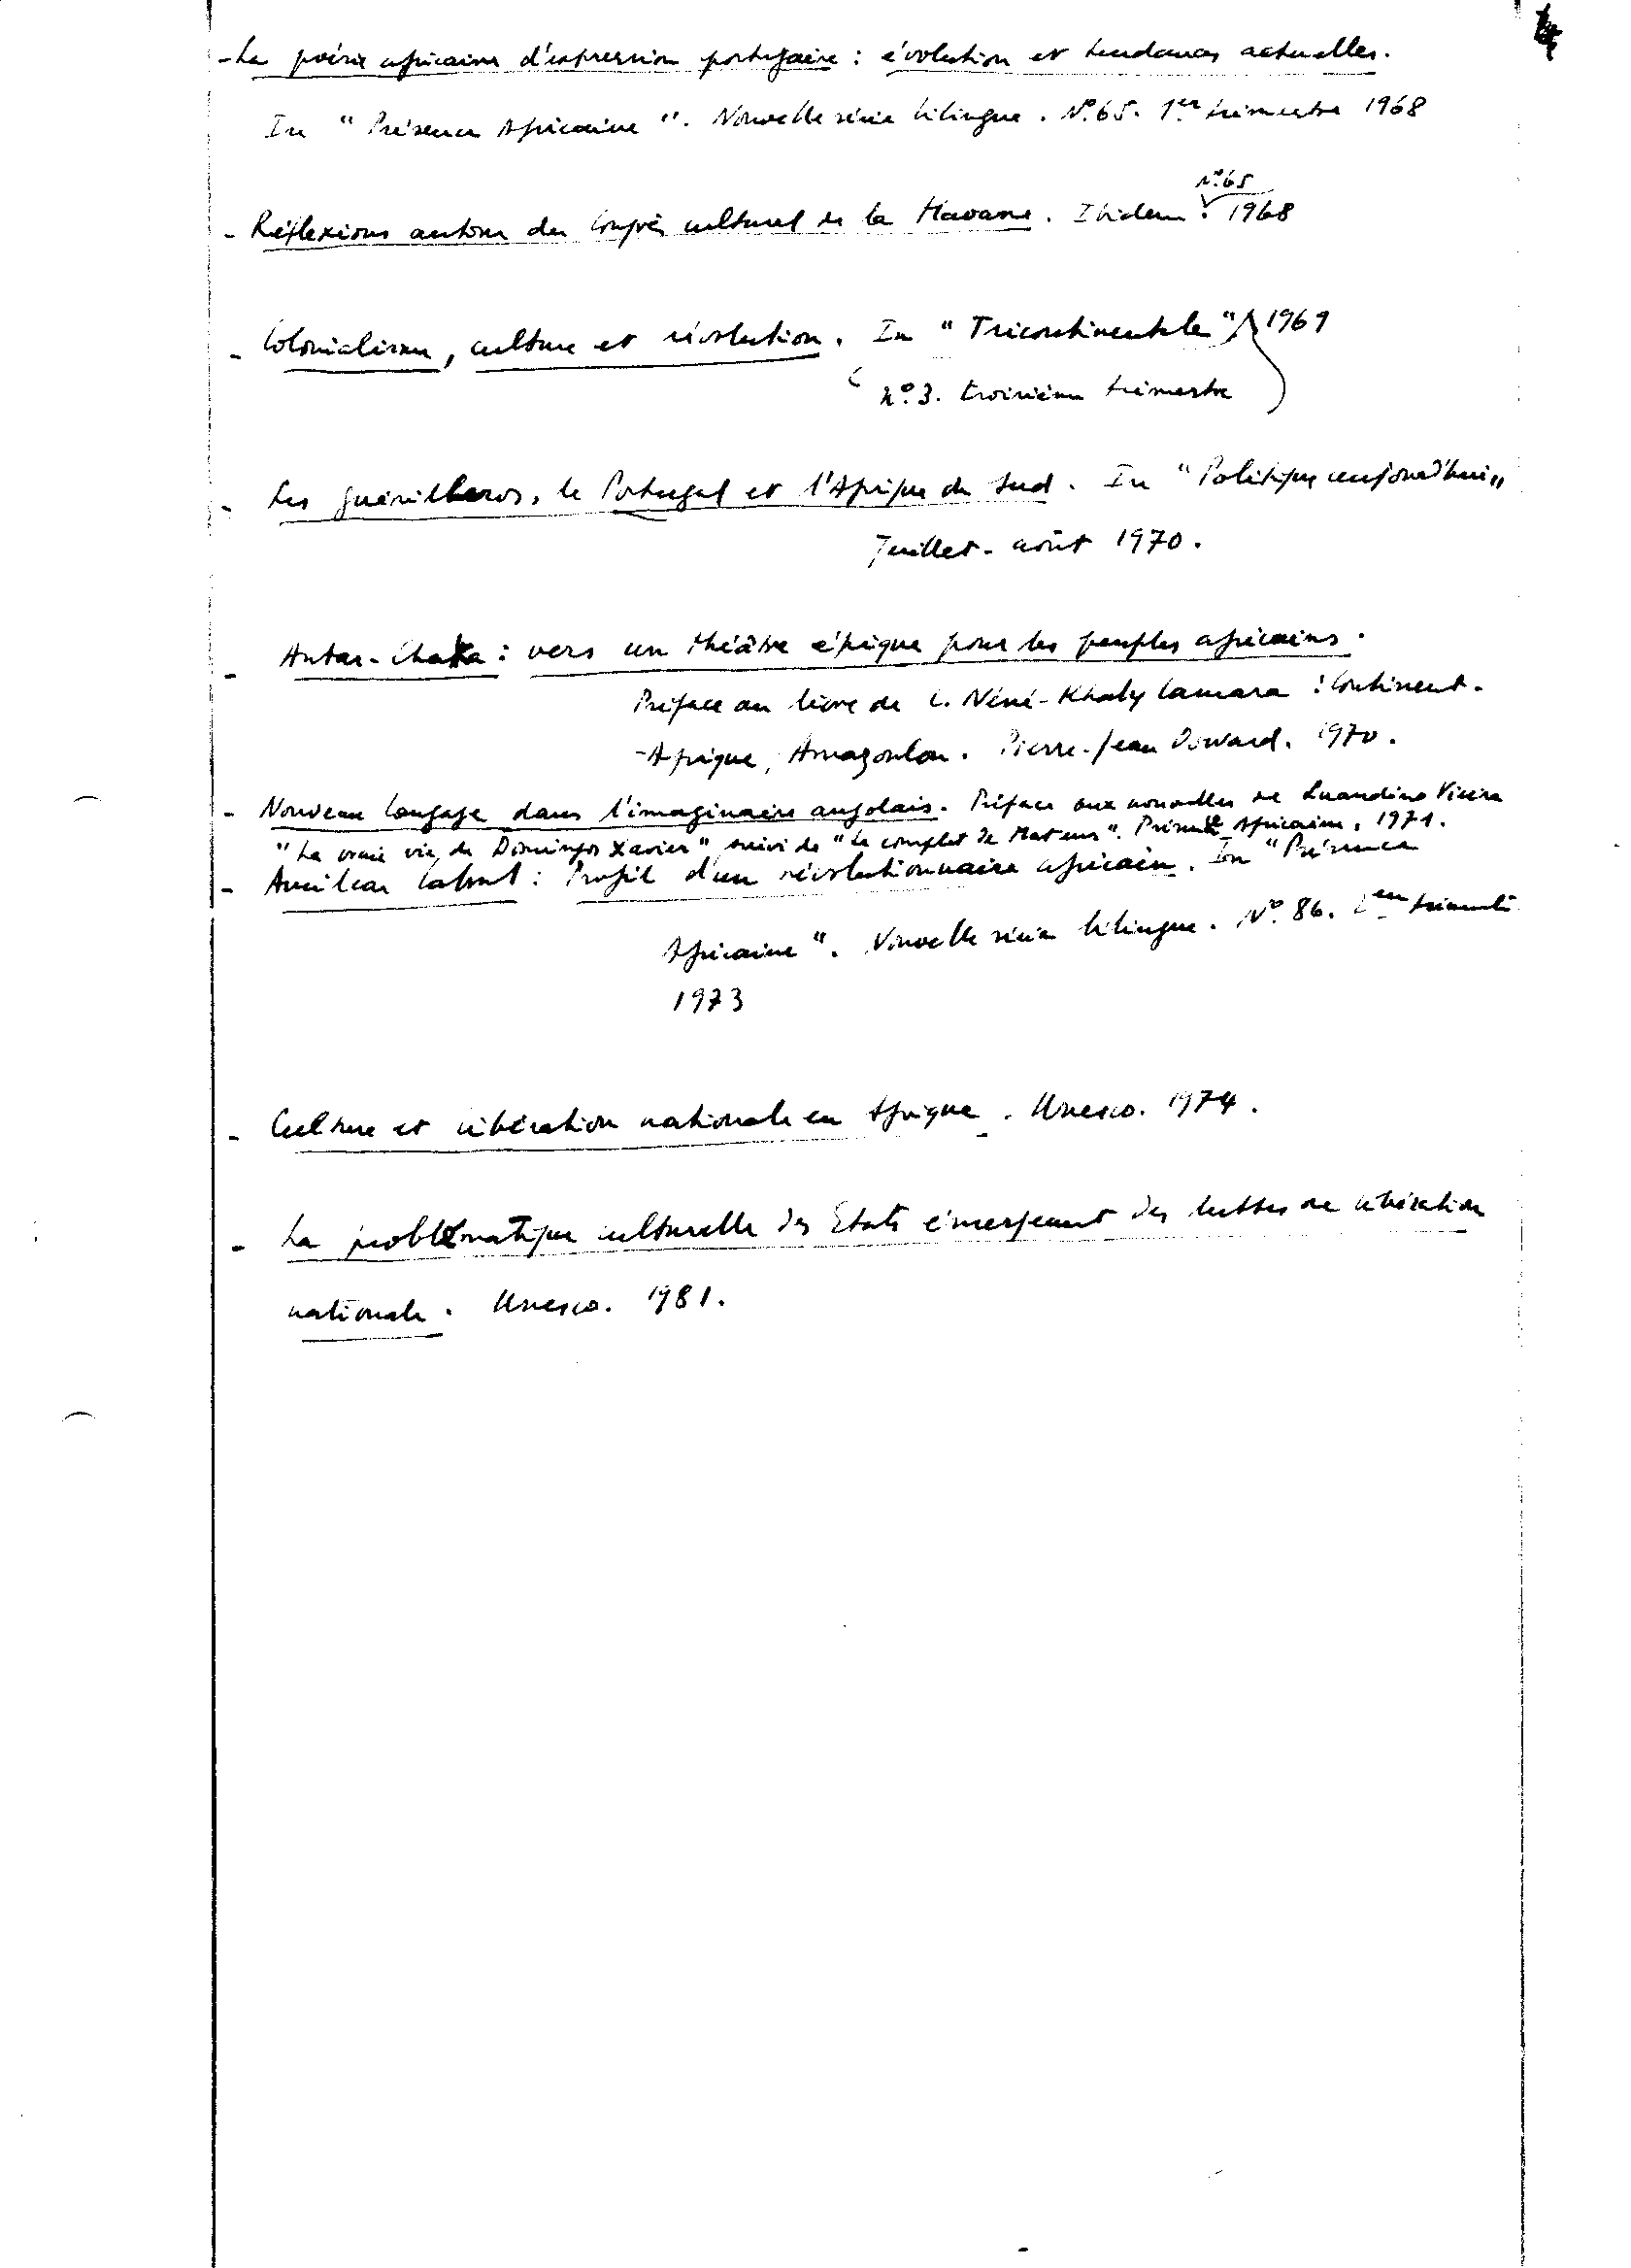 - La poésie africaine d'expression portugaise : évolution et tendances actuelles.
In "Présence Africaine". Nouvelle série bilingue. Nº 65. 1er trimestre 1968
Nº 65
- Réflexions autour du Congrès culturel de la Havane. Ibidem. 1968
- Colonialisme, culture et révolution. In "Tricontinentale" 1969
( nº 3. troisième trimestre )
- Les guérilleros, le Portugal et l'Afrique du Sud. In "Politique aujourd'hui"
Juillet - août 1970.
- Antar-Chaka : vers un théâtre épique pour les peuples africains.
Préface au livre de C. Néné-Khaly Camara : Continent-
-Afrique, Amazoulou. Pierre-Jean Oswald. 1970.
- Nouveau langage dans l'imaginaire angolais. Préface aux nouvelles de Luandino Vieira
"La vraie vie de Domingos Xavier" suivi de "Le complet de Mateus". Présence Africaine. 1971.
- Amilcar Cabral : Profil d'un révolutionnaire africain. In "Présence
Africaine". Nouvelle série bilingue. Nº 86. 2em trimestre
1973
- Culture et libération nationale en Afrique. Unesco. 1974.
- La problématique culturelle des Etats émergeant des luttes de libération
nationale. Unesco. 1981.